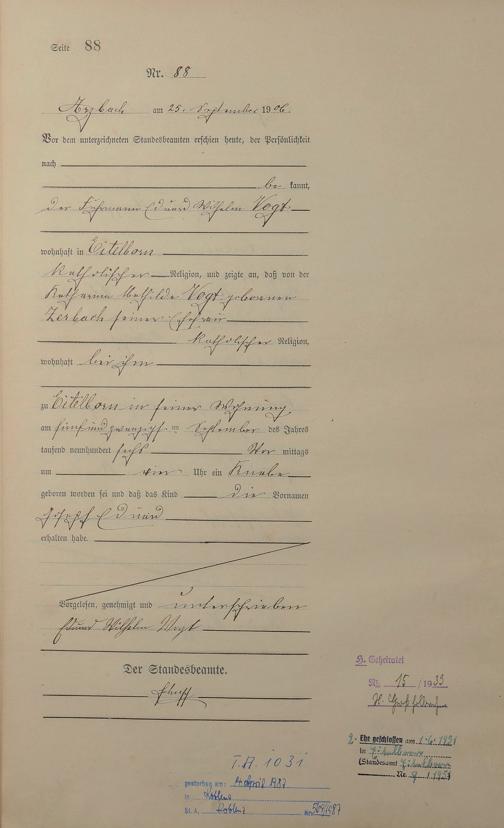 Seite 88
Nr. 88
Arzbach am 25. September 1906.
Vor dem unterzeichneten Standesbeamten erschien heute, der Persönlichkeit
nach
be kannt,
der Fuhrmann Eduard Wilhelm Vogt
wohnhaft in Eitelborn
katholischer Religion, und zeigte an, daß von der
Katharina Mathilde Vogt geborenen
Zerbach seiner Ehefrau
katholischer Religion,
wohnhaft bei ihm
zu Eitelborn in seiner Wohnung
am fünfundzwanzigsten September des Jahres
tausend neunhundert sechs Vor mittags
um vier Uhr ein Knabe
geboren worden sei und daß das Kind die Vornamen
Josef Eduard
erhalten habe.
Vorgelesen, genehmigt und unterschrieben
Eduard Wilhelm Vogt
Der Standesbeamte.
H. Geheiratet
Nr. 15 / 1933
2. Ehe geschlossen am
in
(Standesamt
Nr. 9
gestorben am: April 1987
in Koblenz
St. A. Koblenz Nr.